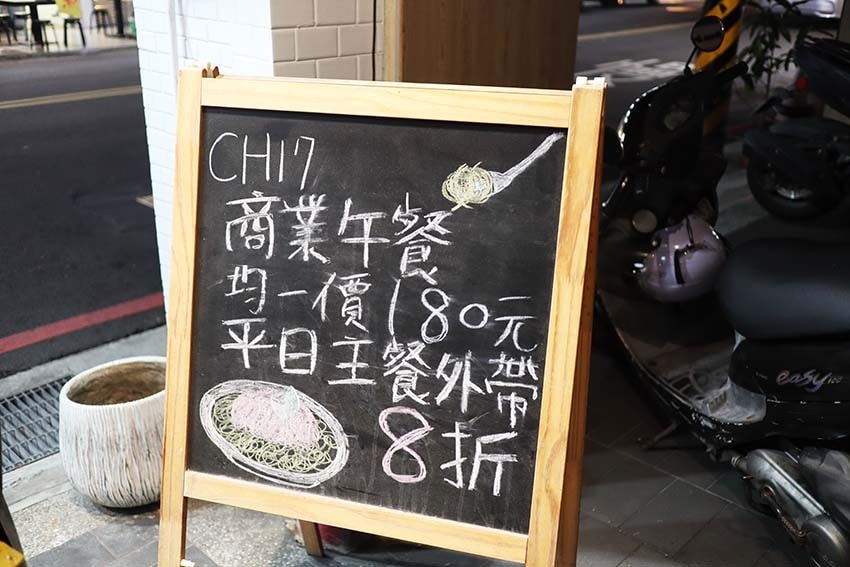 CH17
商業午餐
均一價180元
平日主餐外帶
8折
easy